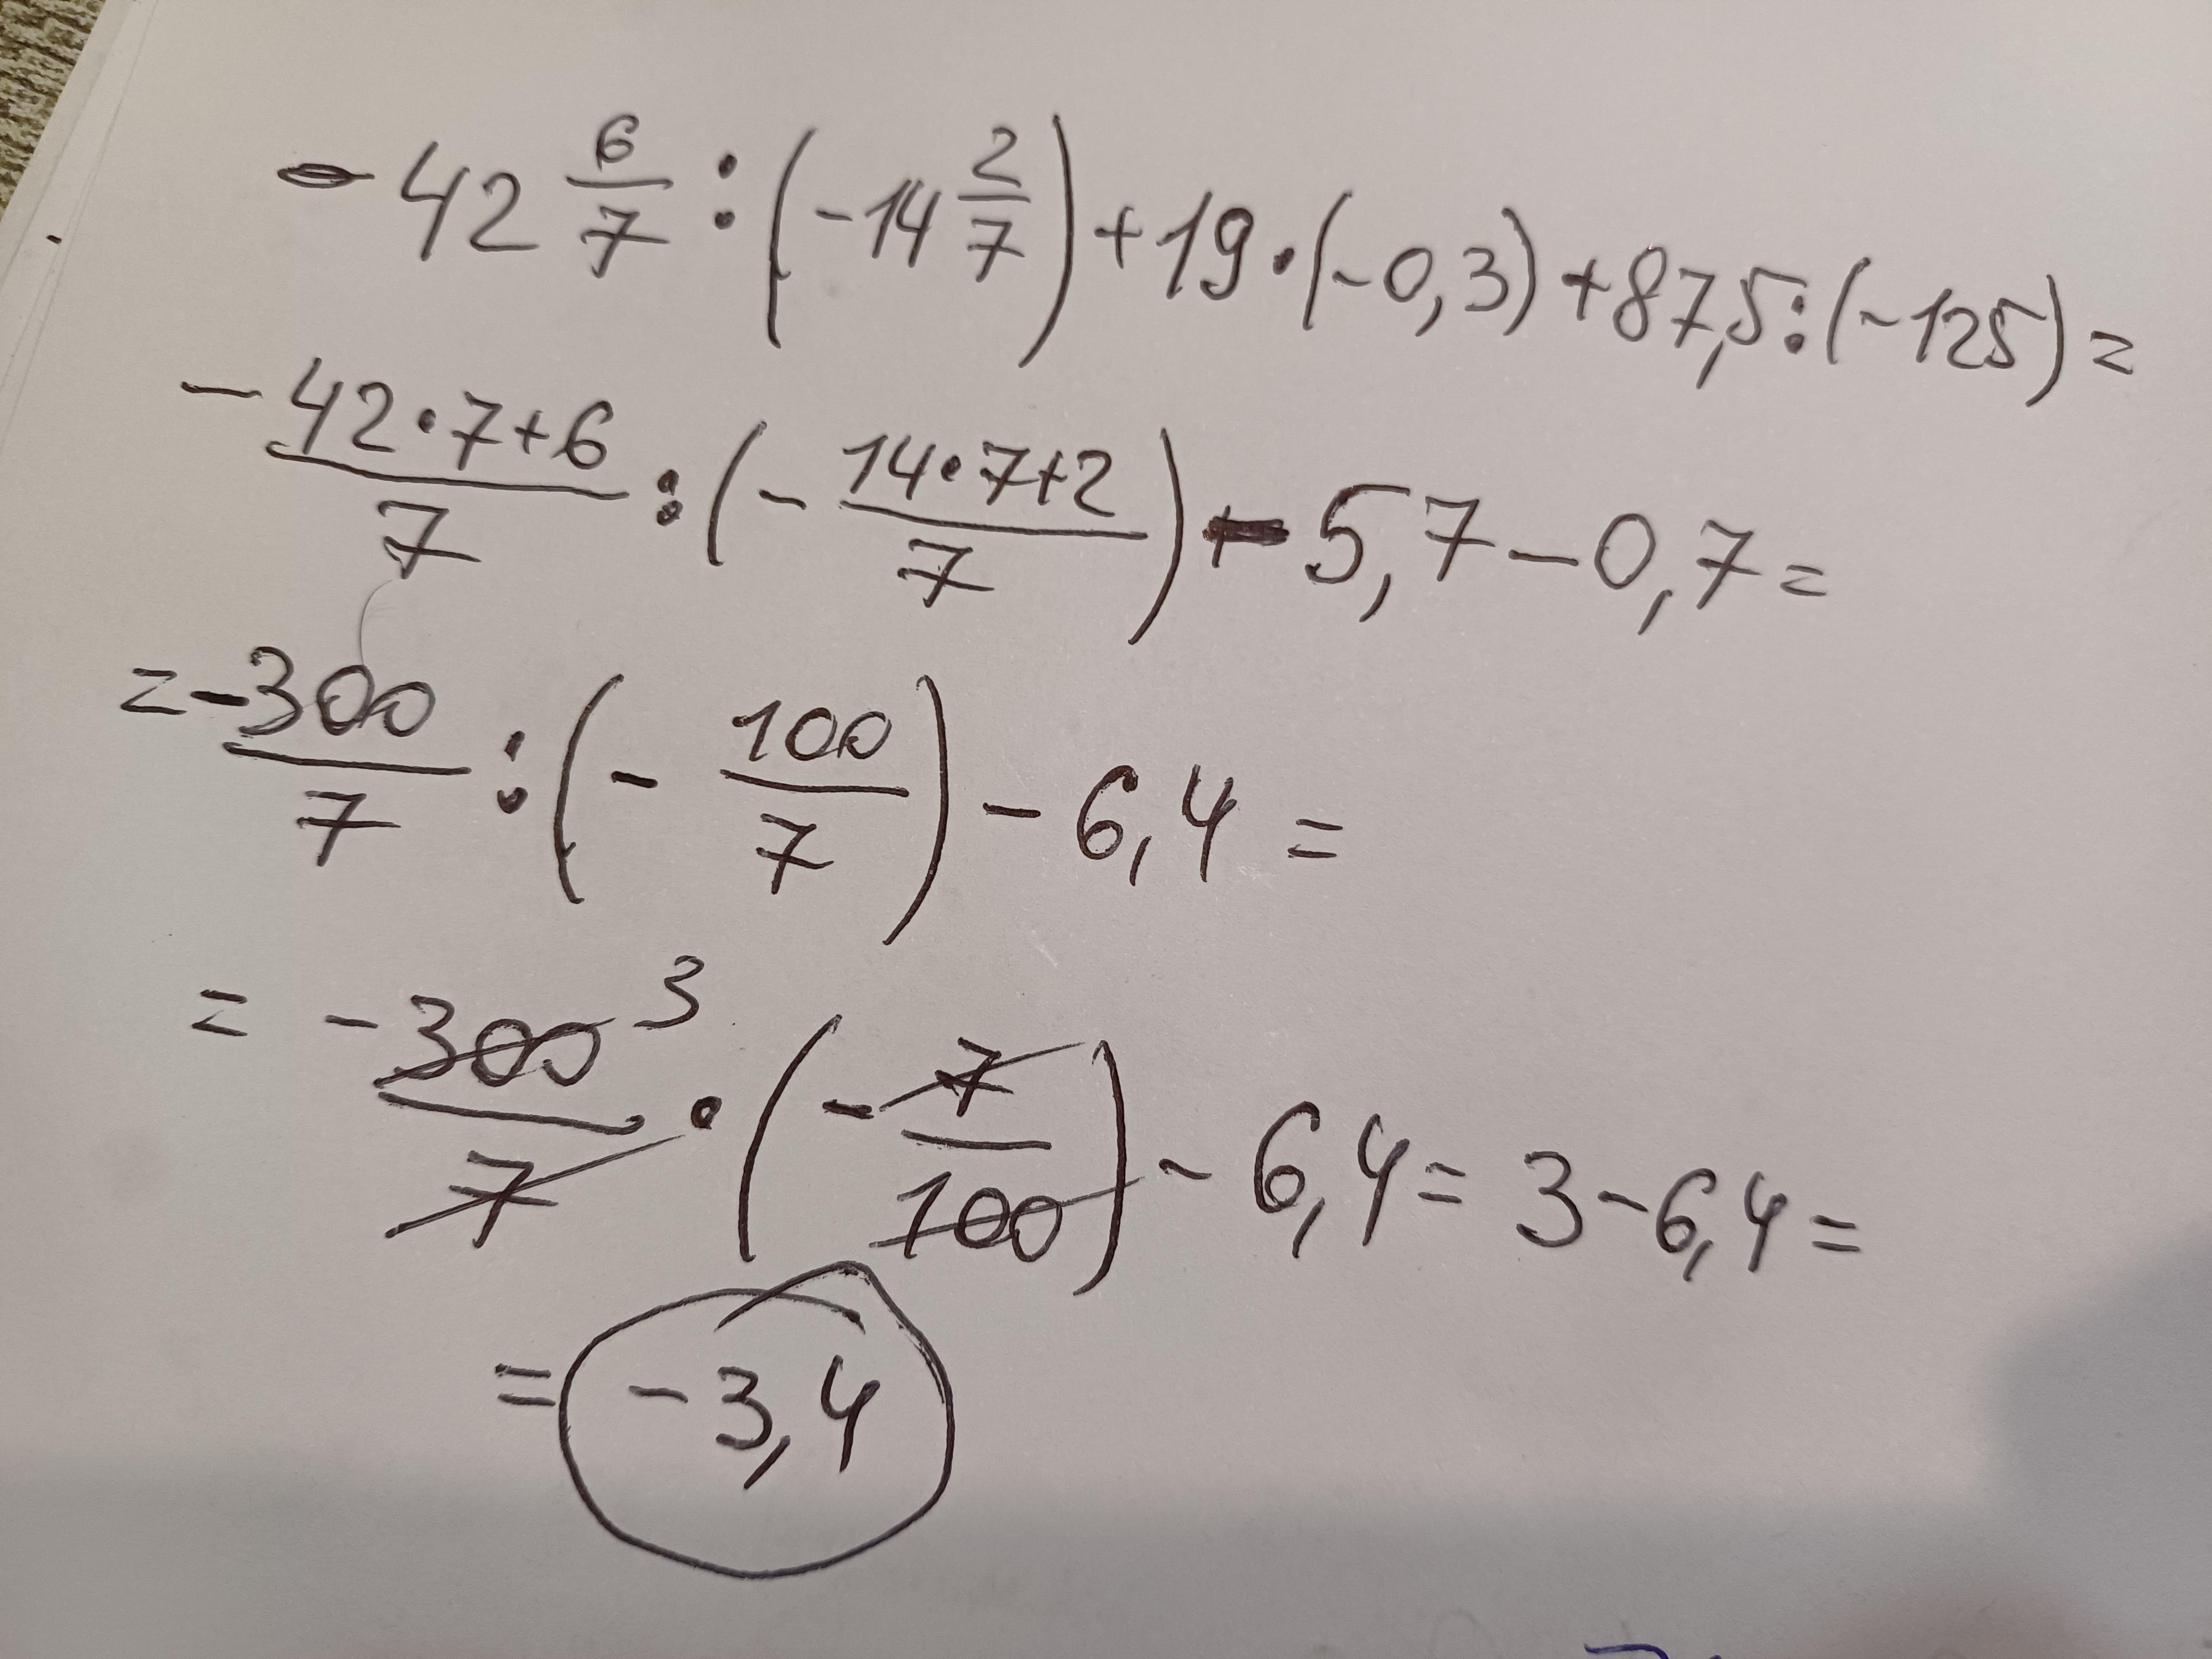 -42 6/7 : (-14 2/7) + 19 · (-0,3) + 87,5 : (-125) =
- 42·7+6/7 : (- 14·7+2/7) - 5,7 - 0,7 =
= -300/7 : (- 100/7) - 6,4 =
= -300 3/7 · (- 7/100) - 6,4 = 3 - 6,4 =
= -3,4